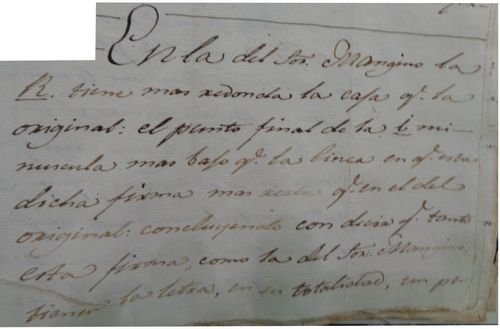 En la del Sor. Mangino la
R. tiene mas redonda la casa qe. la
original: el punto final de la i mi-
nuscula mas bajo qe. la linea en qe. esta
dicha firma mas recta qe. en el del
original: concluyendo con decir qe. tanto
esta firma, como la del Sor. Mangino,
tienen la letra, en su totalidad, un